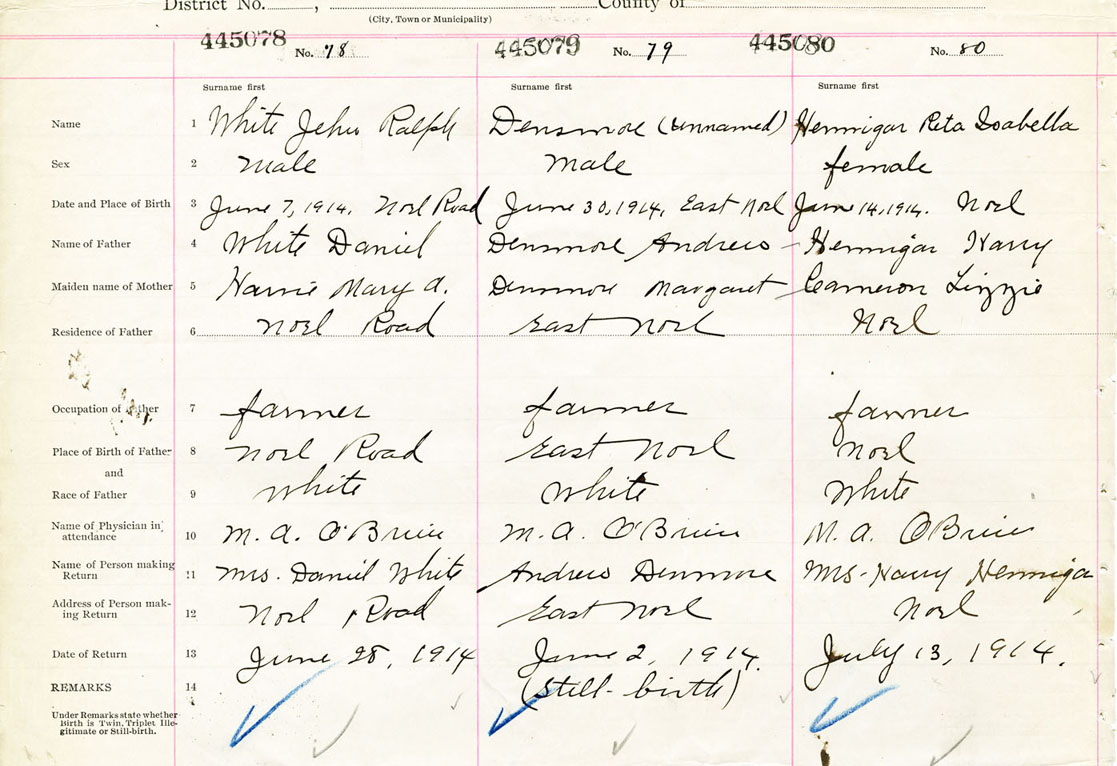 District No. , County of
(City, Town or Municipality)
445078 No. 78 445079 No. 79 445080 No. 80
Surname first Surname first Surname first
Name 1 White John Ralph Densmore (unnamed) Hennigar Reta Isabella
Sex 2 male male female
Date and Place of Birth 3 June 7, 1914. Noel Road June 30, 1914, East Noel June 14, 1914. Noel
Name of Father 4 White Daniel Densmore Andrew - Hennigar Harry
Maiden name of Mother 5 Harvie Mary A. Densmore Margaret Cameron Lizzie
Residence of Father 6 Noel Road East Noel Noel
Occupation of Father 7 farmer farmer farmer
Place of Birth of Father 8 Noel Road East Noel Noel
and
Race of Father 9 White White White
Name of Physician in attendance 10 M. A. O'Brien M. A. O'Brien M. A. O'Brien
Name of Person making Return 11 Mrs. Daniel White Andrew Densmore Mrs. Harry Henniga
Address of Person mak-ing Return 12 Noel Road East Noel Noel
Date of Return 13 June 28, 1914 June 2, 1914. July 13, 1914.
REMARKS 14 (still-birth)
Under Remarks state whether
Birth is Twin, Triplet Ille-
gitimate or Still-birth.